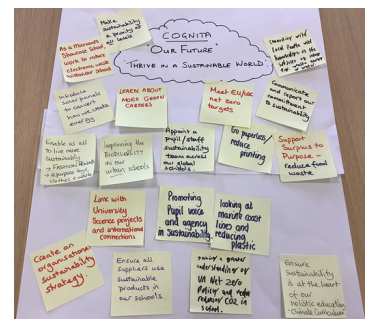 COGNITA
OUR FUTURE
"THRIVE IN A SUSTAINABLE WORLD"
Make
Sustainability
a priority at
all levels
As a Microsoft
Showcase School,
work to reduce
electronic waste
within our school
Introduce
solar panels
to convert
energy
LEARN ABOUT
MORE GREEN
CAREERS
MEET
net zero
targets
Communicate
and report our
commitment to
sustainability
Enable us all
to live more
Sustainably
Improving the
Biodiversity in
our urban schools
Appoint a
pupil/staff
sustainability
team across
our global
schools.
Go paperless/
reduce
printing
Support
Surplus to
Purpose -
reduce food
waste
Link with
University
Science projects
and international
connections
Promoting
Pupil voice
and agency
in Sustainability
looking at
marine coast
lines and
reducing
plastic
Create an
organisational
sustainability
strategy.
Ensure all
suppliers use
sustainable
products in
our schools.
greater
understanding of
UN Net Zero
CO2 in
school.
Ensure
sustainability
is at the heart
of our
holistic education
"Climate Curriculum"